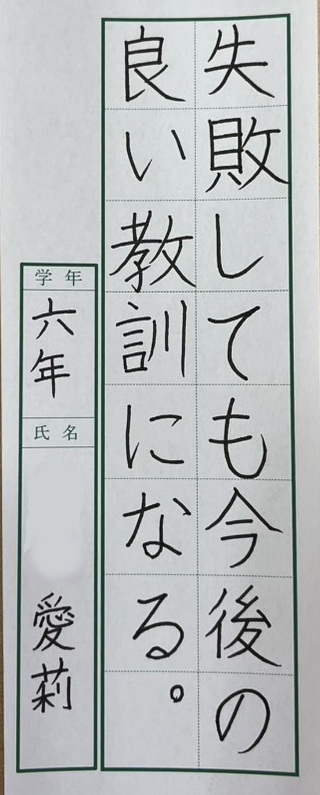 失敗しても今後の
良い教訓になる。
学年
六年
氏名
愛莉